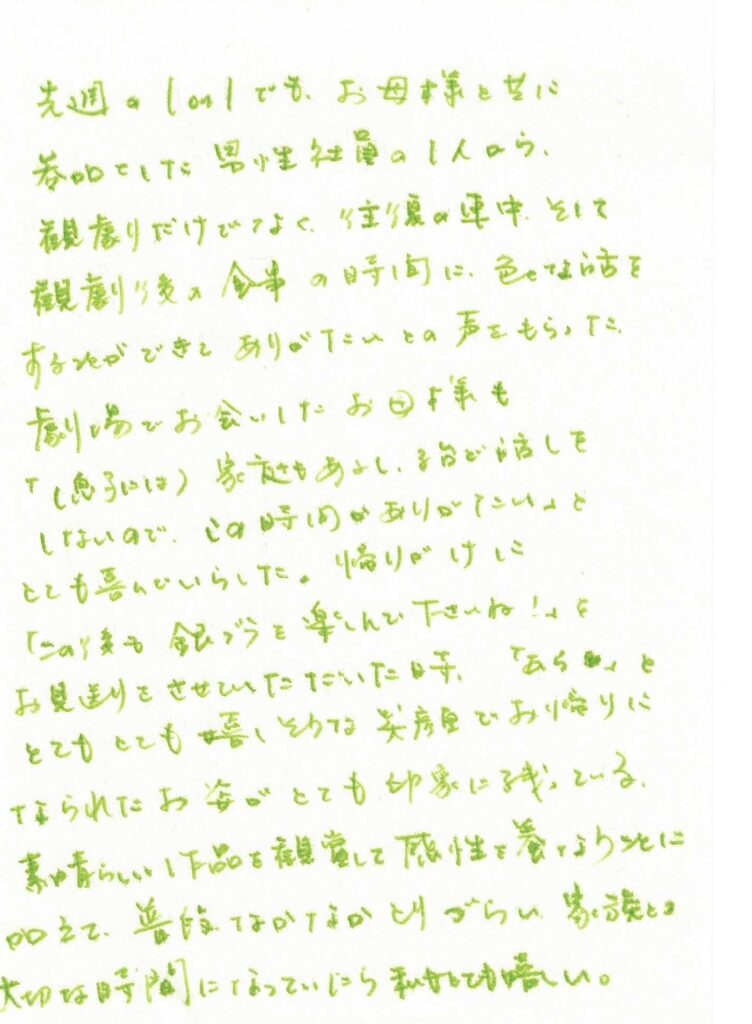 先週の1on1でも、お母様と共に
参加した男性社員の1人から、
観劇だけでなく、往復の車中、そして
観劇後の食事の時間に、色々な話を
することができて ありがたいとの声をもらった。
劇場でお会いしたお母様も
「(息子には) 家庭もあるし、普段話しを
しないので、この時間がありがたい」と
とても喜んでいらした。帰りがけに
「この後も 銀ブラを楽しんで下さいね!」と
お見送りをさせていただいた時、「あら」と
とてもとても嬉しそうな笑顔でお帰りに
なられたお姿がとても印象に残っている。
素晴らしい作品を観賞して感性を養うことに
加えて、普段なかなかとりづらい 家族との
大切な時間になっていたら私もとても嬉しい。